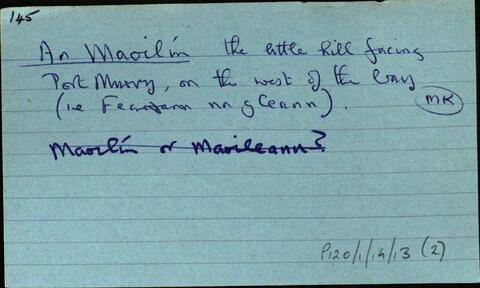 145
An Maoilín the little hill facing
Port Murvy, on the west of the bay
(ie Fearann na gCeann).
MK
Maoilín or Maoileann?
P120/1/14/13 (2)